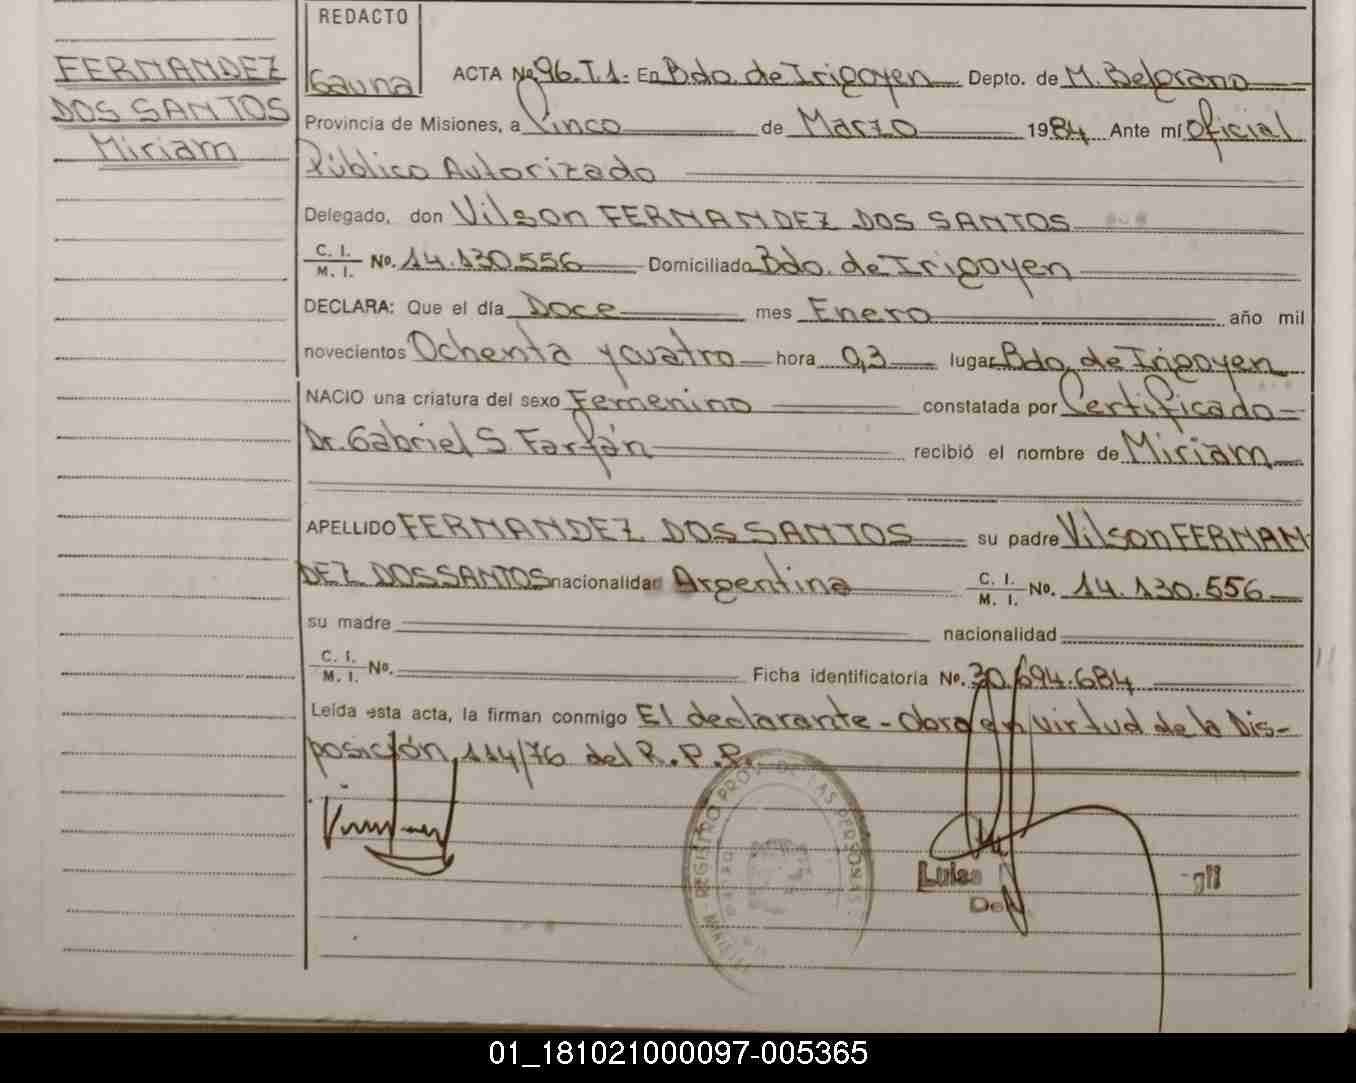 REDACTO
Gauna
FERNANDEZ
DOS SANTOS
Miriam
ACTA No 96.T.1. En Bdo. de Irigoyen Depto. de M. Belgrano
Provincia de Misiones, a Cinco de Marzo 1984 Ante mí Oficial
Público Autorizado
Delegado, don Vilson FERNANDEZ DOS SANTOS
C. I. M. I. No. 14.130.556 Domiciliado Bdo. de Irigoyen
DECLARA: Que el día Doce mes Enero año mil
novecientos Ochenta y cuatro hora 0,3 lugar Bdo. de Irigoyen
NACIO una criatura del sexo Femenino constatada por Certificado
Dr. Gabriel S. Farfán recibió el nombre de Miriam
APELLIDO FERNANDEZ DOS SANTOS su padre Vilson FERNAN
DEZ DOS SANTOS nacionalidad Argentina C. I. M. I. No. 14.130.556
su madre nacionalidad
C. I. M. I. No. Ficha identificatoria No. 30.694.684
Leída esta acta, la firman conmigo El declarante - obra en virtud de la Dis-
posición 114/76 del R.P.P.
REGISTRO PROV. DE LAS PERSONAS
01_181021000097-005365